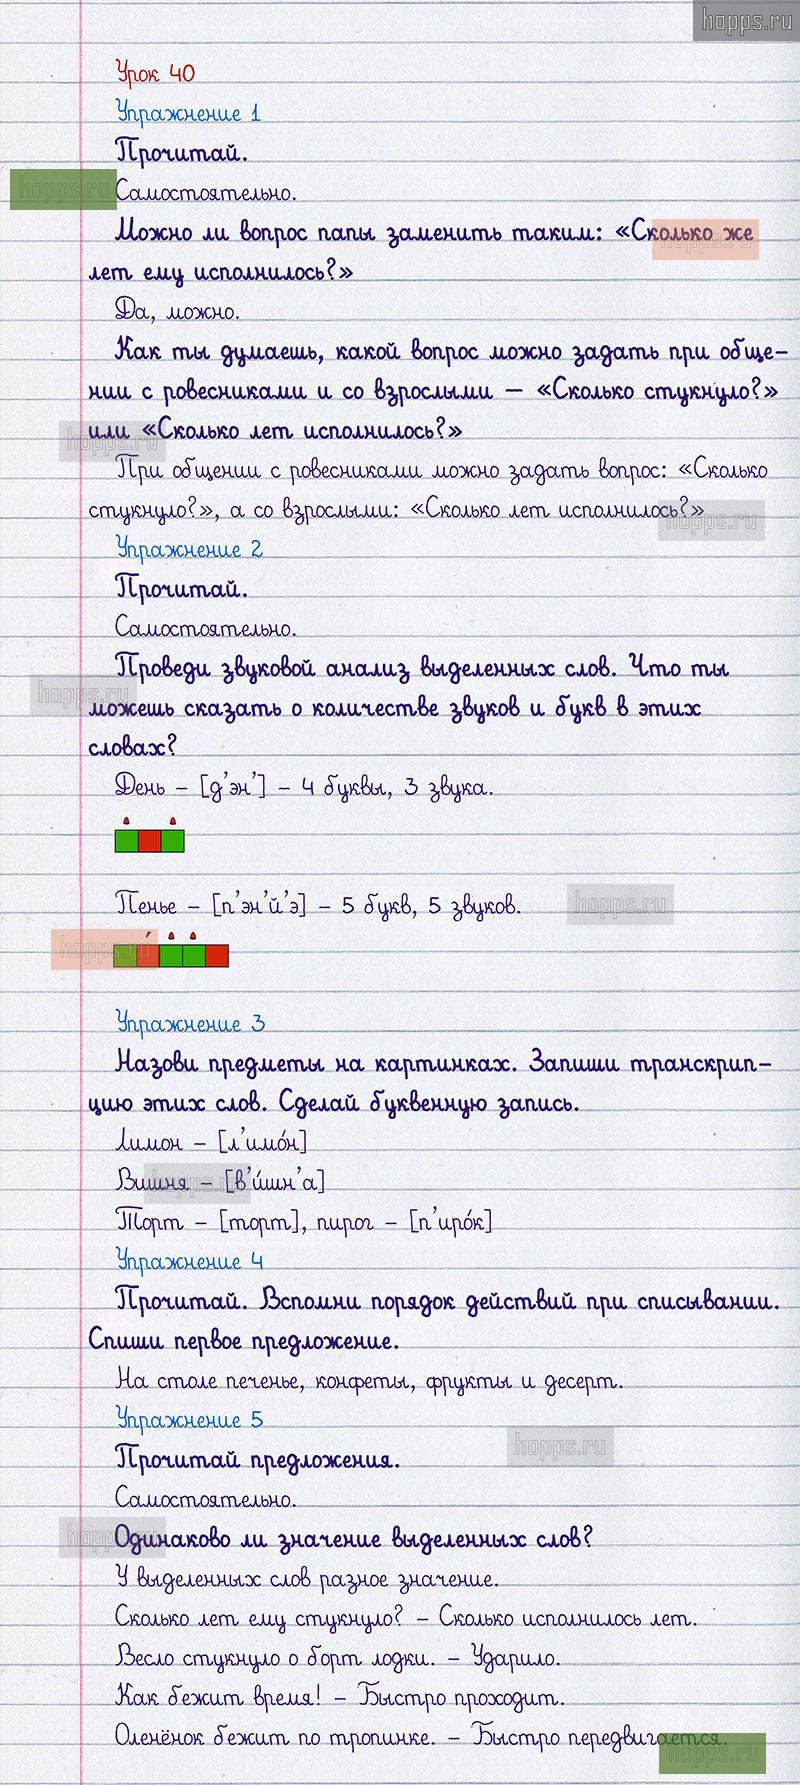 hopps.ru
Урок 40
Упражнение 1
Прочитай.
hopps.ru
Самостоятельно.
Можно ли вопрос папы заменить таким: «Сколько же
hopps.ru
лет ему исполнилось?»
Да, можно.
Как ты думаешь, какой вопрос можно задать при обще-
нии с ровесниками и со взрослыми – «Сколько стукнуло?»
или «Сколько лет исполнилось?»
hopps.ru
При общении с ровесниками можно задать вопрос: «Сколько
стукнуло?», а со взрослыми: «Сколько лет исполнилось?»
hopps.ru
Упражнение 2
Прочитай.
Самостоятельно.
Проведи звуковой анализ выделенных слов. Что ты
hopps.ru
можешь сказать о количестве звуков и букв в этих
словах?
День – [д’эн’] – 4 буквы, 3 звука.
Пенье – [п’эн’й’э] – 5 букв, 5 звуков.
hopps.ru
hopps.ru
Упражнение 3
Назови предметы на картинках. Запиши транскрип-
цию этих слов. Сделай буквенную запись.
Лимон – [л’имо́н]
Вишня – [в’и́шн’а]
hopps.ru
Торт – [торт], пирог – [п’иро́к]
Упражнение 4
Прочитай. Вспомни порядок действий при списывании.
Спиши первое предложение.
На столе печенье, конфеты, фрукты и десерт.
Упражнение 5
hopps.ru
Прочитай предложения.
Самостоятельно.
Одинаково ли значение выделенных слов?
hopps.ru
У выделенных слов разное значение.
Сколько лет ему стукнуло? – Сколько исполнилось лет.
Весло стукнуло о борт лодки. – Ударило.
Как бежит время! – Быстро проходит.
Оленёнок бежит по тропинке. – Быстро передвигается.
hopps.ru